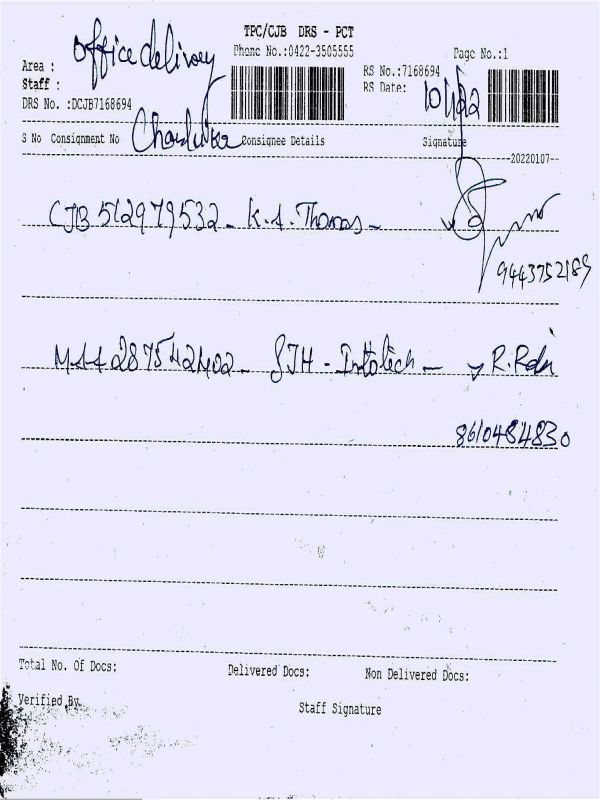 TPC/CJB DRS - PCT
Phone No.:0422-3505555
Page No.:1
Area : Office delivery
Staff :
RS No.:7168694
RS Date:
DRS No. :DCJB7168694
S No Consignment No Consignee Details Signature
--20220107--
CJB 512979532 - K.A. Thomas -
9443752189
R.
8610484830
Total No. Of Docs: Delivered Docs: Non Delivered Docs:
Verified By
Staff Signature